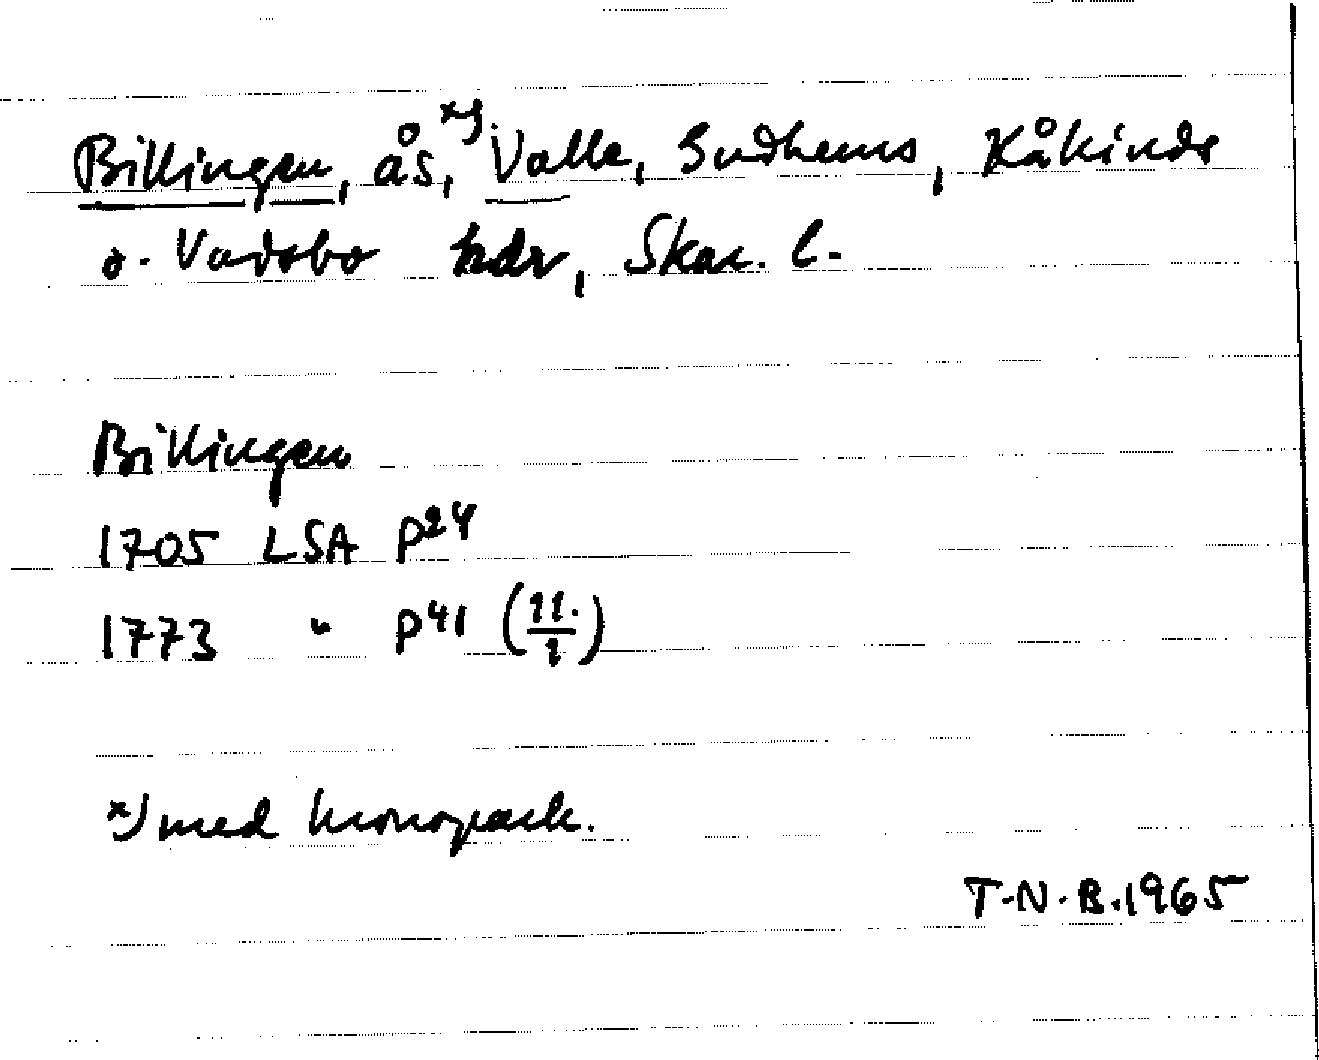 Billingen, ås, x) Valle, Gudhems, Kåkinds
o. Vadsbo hdr, Skar. l.
Billingen
1705 LSA P24
1773 " P41 (11./1)
x) med kronopark.
T.N.B. 1965